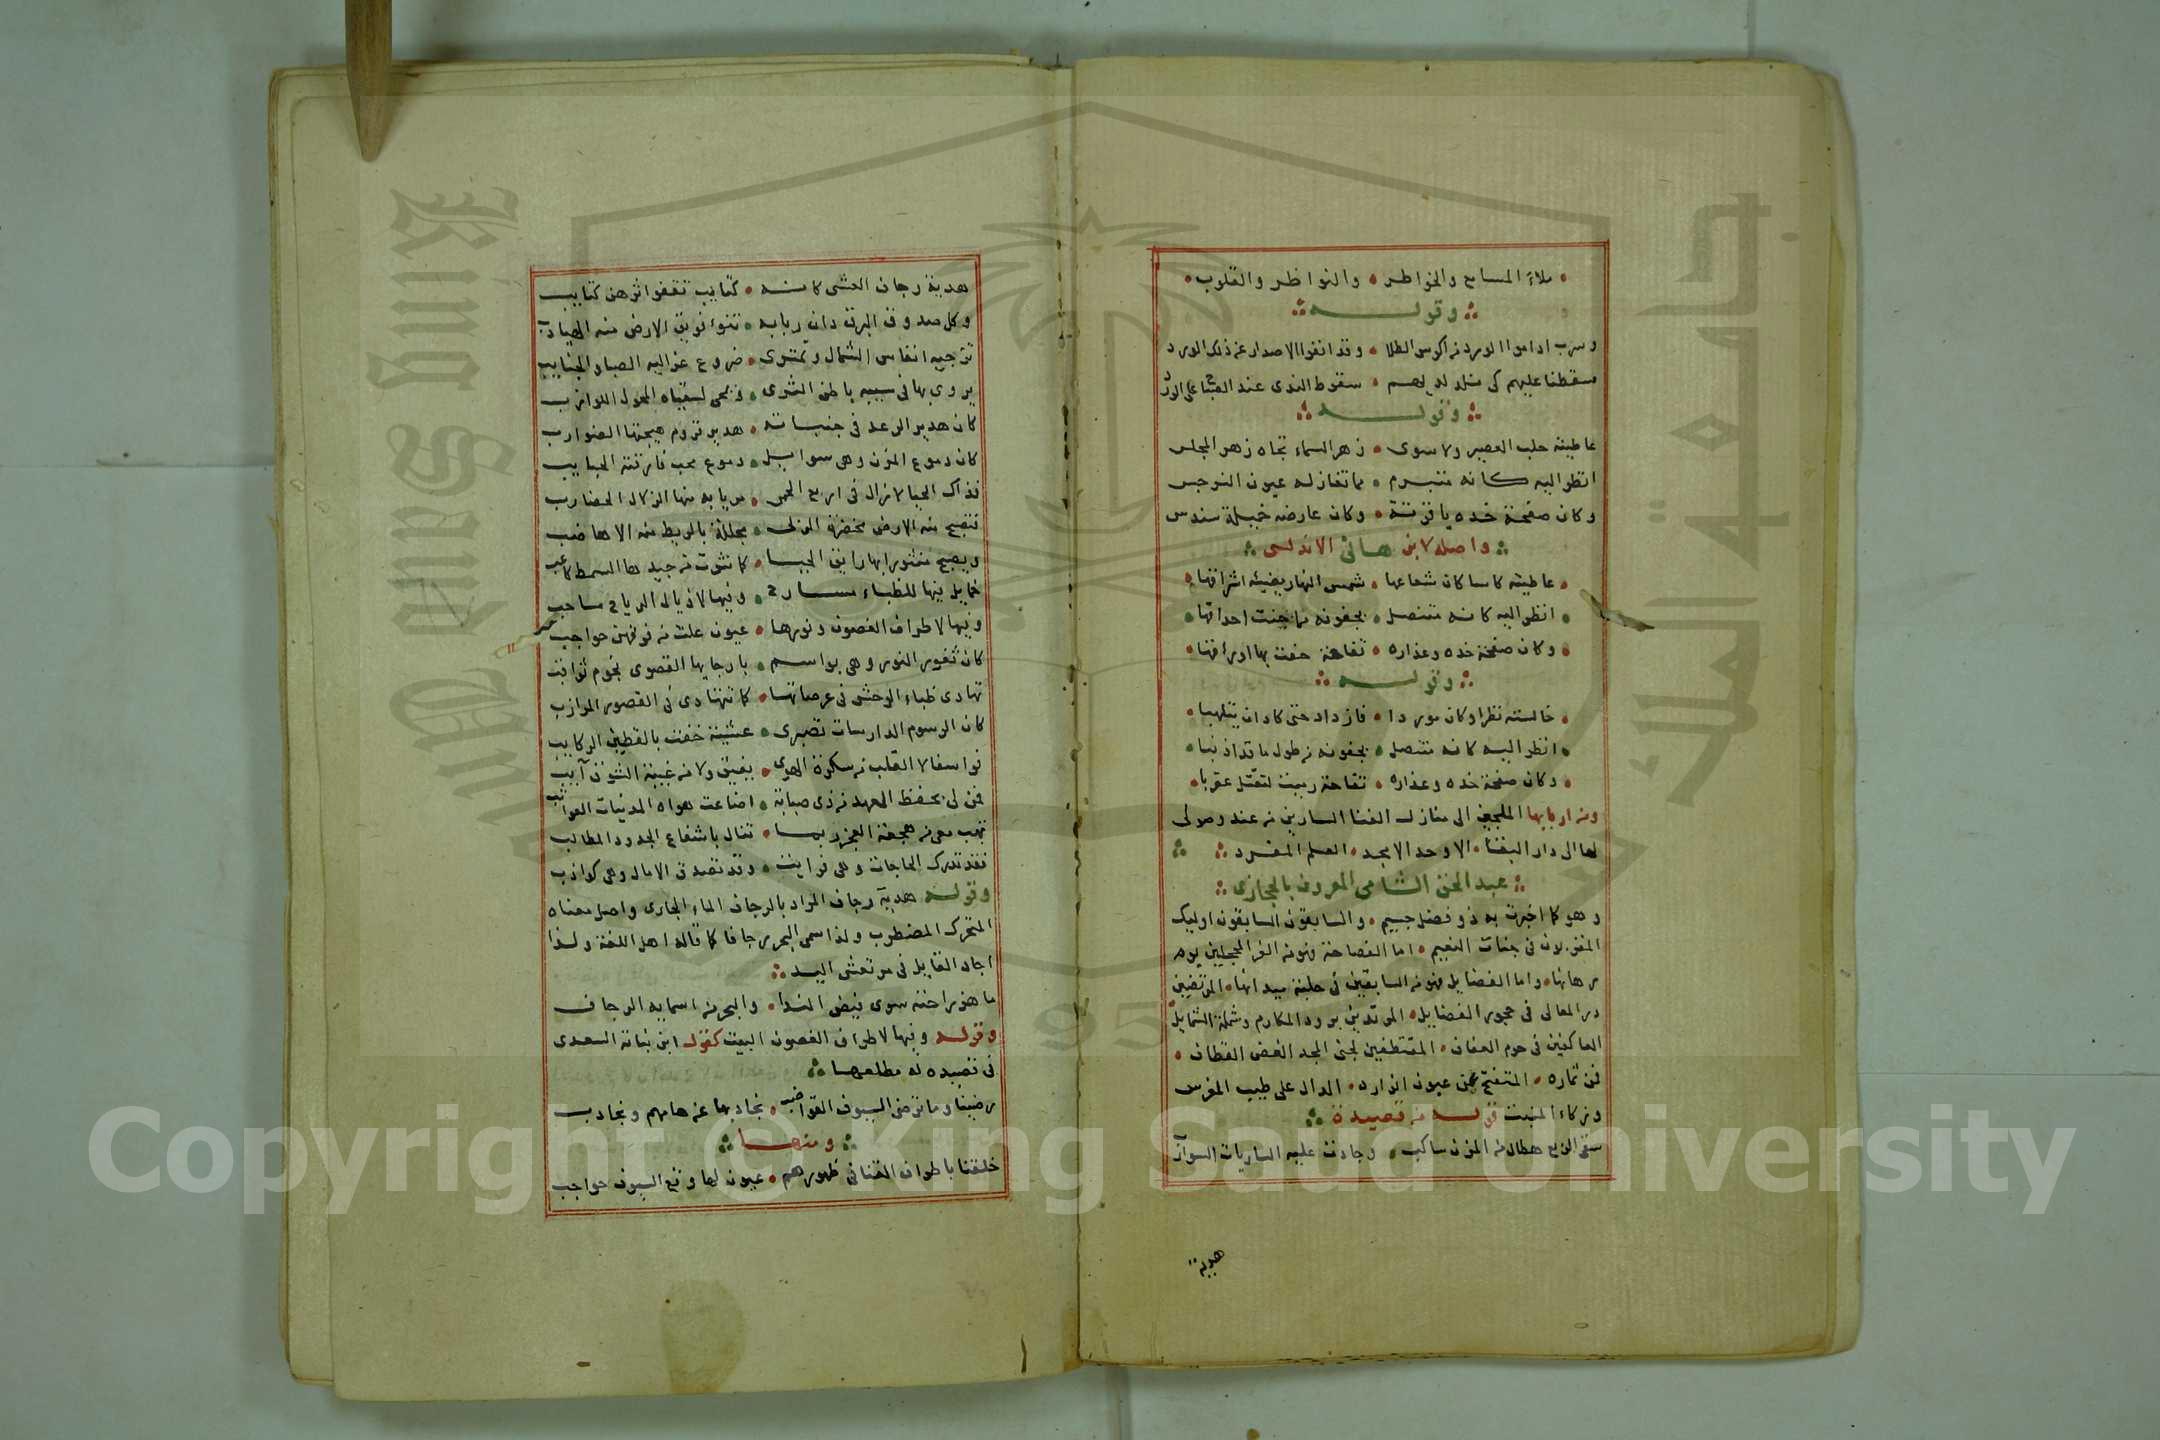 ملاء المسامع والخواطر والنواظر والقلوب
وقوله
وسرب اداموا الورد من اكوس الطلا وقد انفوا الاصدار عن ذلك الورد
سقطنا عليهم كى نلذ لديهم سقوط الندى عند الصباح على الورد
وقوله
عاطيته حلب العصير ولا سوى زهر السماء تجاه زهر المجلس
انظر اليه كانه متبرم مما تغازله عيون النرجس
وكان صفحة خده ياقوتة وكان عارضه خميلة سندس
واصله لابن هانئ الاندلسى
عاطيته كاسا كان شعاعها شمس النهار يضيئه اشراقها
انظر اليه كانه متنصل بجفونه مما جنت احداقها
وكان صفحة خده وعذاره تفاحة حفت بها اوراقها
وقوله
خالسته نظرا وكان موردا فازداد حتى كاد ان يتلهبا
انظر اليه كانه متنصل بجفونه من طول ما قد اذنبا
وكان صفحة خده وعذاره تفاحة رميت لتقتل عقربا
ومن اربابها الملجين الى منازل الفنا السارين من عند وصولى
لها الى دار البقا الاوحد الامجد العلم المفرد
عبد الحق الشامى المعروف بالحجازى
وهو كما اخبرت به ذو فضل جسيم والسابقون السابقون اوليك
المقربون فى جنات النعيم اما الفصاحة فهو من الغر المحجلين يوم
رهانها واما الفضايل فهو من السابقين فى حلبة ميدانها المرتضعين
در المعالى فى حجور الفضايل المرتدين برود المكارم وشملة الشمايل
العاكفين فى حرم العفاف المقتطفين لجنى المجد الغض القطاف
فمن ثماره المتفتح عن عيون ازهاره الدال على طيب المغرس
وزكاء المنبت قوله من قصيدة
سقى الربع هطال من المزن ساكب وجادت عليه الساريات السوارب
هدية
هدية رجاف العشى كانه كتايب تقفو اثرهن كتايب
وكل صدوق البرق دان ربابه تنوء فويق الارض منه الهيادب
تزجيه انفاس الشمال وتمترى ضروع عزاليه الصبا والجنايب
يروى بها فى سيبه باطن الثرى وتحيى لسقياه المحول اللوازب
كان هدير الرعد فى جنباته هدير قروم هيجتها الضوارب
كان دموع المزن وهى سوابل دموع محب فارقته الحبايب
فذاك الحيا لا زال فى اربع الحمى
فتصبح منه الارض مخضرة الربى مجللة بالريط منه الاهاضب
ويصبح منثور ابهارايق الحيا كما نثرت من جيدها السمط كاعب
خمايل فيها للظباء مسارح وفيها لاذيال الرياح مساحب
وفيها لاطراف الغصون ونورها عيون علت من فوقهن حواجب
كان ثغور النور وهى بواسم بارجايها القصوى نجوم ثواقب
تهادى ظباء الوحش فى عرصاتها كما تتهادى فى القصور المرازب
كان الرسوم الدارسات تصبرى عشية خفت بالقطين الركايب
فوا اسفا لا القلب من سكرة الهوى يفيق ولا من غيبة الشوق آيب
فمن لى بحفظ العهد من ذى صبابة اضاعت هواه المدنيات العواتب
تهب معى من هجعة العجز ربما تنال باشفاع الجدود المطالب
فقد تدرك الحاجات وهى فوايت وقد تصدق الامال وهى كواذب
وقوله هدية رجاف المراد بالرجاف الماء الجارى واصل معناه
المتحرك المضطرب ولذا سمى البحر رجافا كما قاله اهل اللغة ولذا
اجاد القايل فى مرتعش اليد
ما هز راحته سوى فيض الندا والبحر من اسمايه الرجاف
وقوله وفيها لاطراف الغصون البيت كقول ابن نباتة السعدى
فى قصيده له مطلعها
رضينا وما ترضى السيوف القواضب نجاذبها عن هامهم وتجاذب
ومنها
خلقنا باطراف القنا فى ظهورهم عيون لها وقع السيوف حواجب